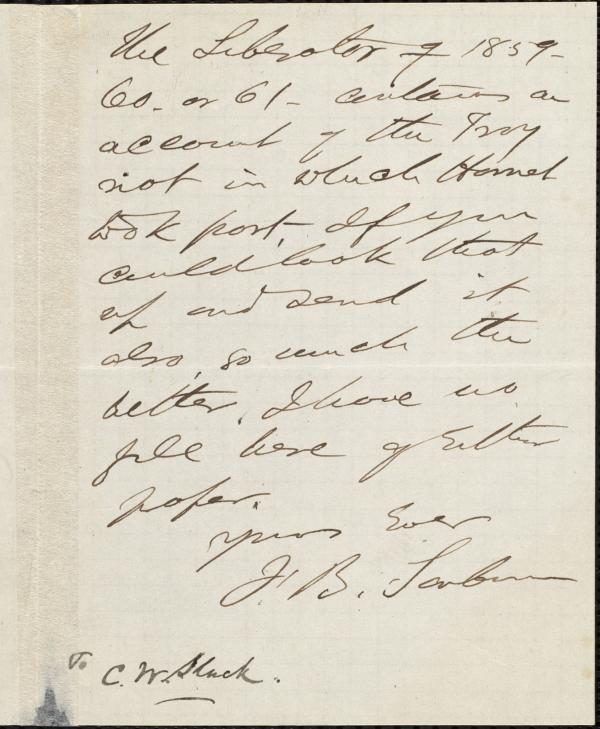 The Liberator of 1859-
60- or 61- contains an
account of the Troy
riot in which Harriet
took part. If you
could look that
up and send it
also, so much the
better. I have no
file here of either
paper.
Yours Ever
F. B. Sanborn
To C. W. Slack.